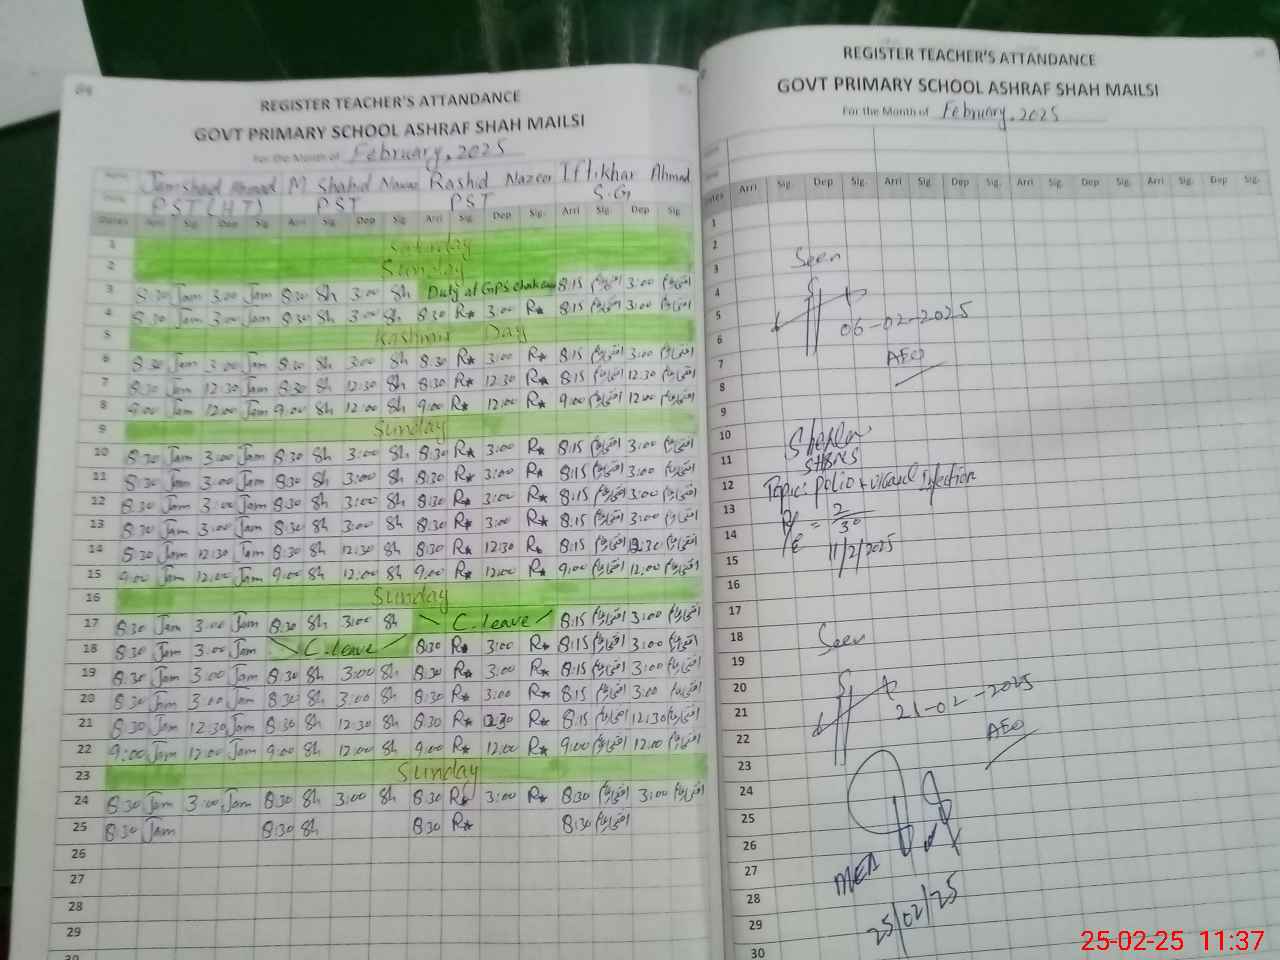 REGISTER TEACHER'S ATTANDANCE
GOVT PRIMARY SCHOOL ASHRAF SHAH MAILSI
For the Month of February, 2025
Jamshad Ahmad M Shahid Nawaz Rashid Nazeer Iftikhar Ahmad
PST (HT) PST PST S.G
Dates Arri Sig Dep Sig Arri Sig. Dep Sig Arri Sig. Dep Sig. Arri Sig. Dep Sig
1 Saturday
2 Sunday
3 8:30 Jam 3:00 Jam 8:30 Sh 3:00 Sh Duty at GPS 8:15 افتخار 3:00 افتخار
4 8:30 Jam 3:00 Jam 8:30 Sh 3:00 Sh 8:30 R* 3:00 R* 8:15 افتخار 3:00 افتخار
5 Kashmir Day
6 8:30 Jam 3:00 Jam 8:30 Sh 3:00 Sh 8:30 R* 3:00 R* 8:15 افتخار 3:00 افتخار
7 8:30 Jam 12:30 Jam 8:30 Sh 12:30 Sh 8:30 R* 12:30 R* 8:15 افتخار 12:30 افتخار
8 9:00 Jam 12:00 Jam 9:00 Sh 12:00 Sh 9:00 R* 12:00 R* 9:00 افتخار 12:00 افتخار
9 Sunday
10 8:30 Jam 3:00 Jam 8:30 Sh 3:00 Sh 8:30 R* 3:00 R* 8:15 افتخار 3:00 افتخار
11 8:30 Jam 3:00 Jam 8:30 Sh 3:00 Sh 8:30 R* 3:00 R* 8:15 افتخار 3:00 افتخار
12 8:30 Jam 3:00 Jam 8:30 Sh 3:00 Sh 8:30 R* 3:00 R* 8:15 افتخار 3:00 افتخار
13 8:30 Jam 3:00 Jam 8:30 Sh 3:00 Sh 8:30 R* 3:00 R* 8:15 افتخار 3:00 افتخار
14 8:30 Jam 12:30 Jam 8:30 Sh 12:30 Sh 8:30 R* 12:30 R* 8:15 افتخار 12:30 افتخار
15 9:00 Jam 12:00 Jam 9:00 Sh 12:00 Sh 9:00 R* 12:00 R* 9:00 افتخار 12:00 افتخار
16 Sunday
17 8:30 Jam 3:00 Jam 8:30 Sh 3:00 Sh C.leave 8:15 افتخار 3:00 افتخار
18 8:30 Jam 3:00 Jam C.leave 8:30 R* 3:00 R* 8:15 افتخار 3:00 افتخار
19 8:30 Jam 3:00 Jam 8:30 Sh 3:00 Sh 8:30 R* 3:00 R* 8:15 افتخار 3:00 افتخار
20 8:30 Jam 3:00 Jam 8:30 Sh 3:00 Sh 8:30 R* 3:00 R* 8:15 افتخار 3:00 افتخار
21 8:30 Jam 12:30 Jam 8:30 Sh 12:30 Sh 8:30 R* 12:30 R* 8:15 افتخار 12:30 افتخار
22 9:00 Jam 12:00 Jam 9:00 Sh 12:00 Sh 9:00 R* 12:00 R* 9:00 افتخار 12:00 افتخار
23 Sunday
24 8:30 Jam 3:00 Jam 8:30 Sh 3:00 Sh 8:30 R* 3:00 R* 8:30 افتخار 3:00 افتخار
25 8:30 Jam 8:30 Sh 8:30 R* 8:30 افتخار
26
27
28
29
30
REGISTER TEACHER'S ATTANDANCE
GOVT PRIMARY SCHOOL ASHRAF SHAH MAILSI
For the Month of February, 2025
Arri Sig. Dep Sig. Arri Sig. Dep Sig. Arri Sig. Dep Sig. Arri Sig. Dep Sig.
1
2
3 Seen
4
5
6 06-02-2025
7 AEO
8
9
10
11 SH&NS
12 Topic: Polio
13 2
14 30
15 11/2/2025
16
17
18 Seen
19
20
21 21-02-2025
22 AEO
23
24
25
26
27 MEA
28
29 25/02/25
30
25-02-25 11:37